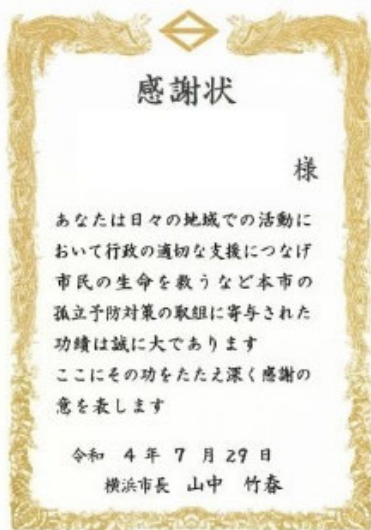 感謝状
様
あなたは日々の地域での活動に
おいて行政の適切な支援につなげ
市民の生命を救うなど本市の
孤立予防対策の取組に寄与された
功績は誠に大であります
ここにその功をたたえ深く感謝の
意を表します
令和 4 年 7 月 29 日
横浜市長 山中 竹春